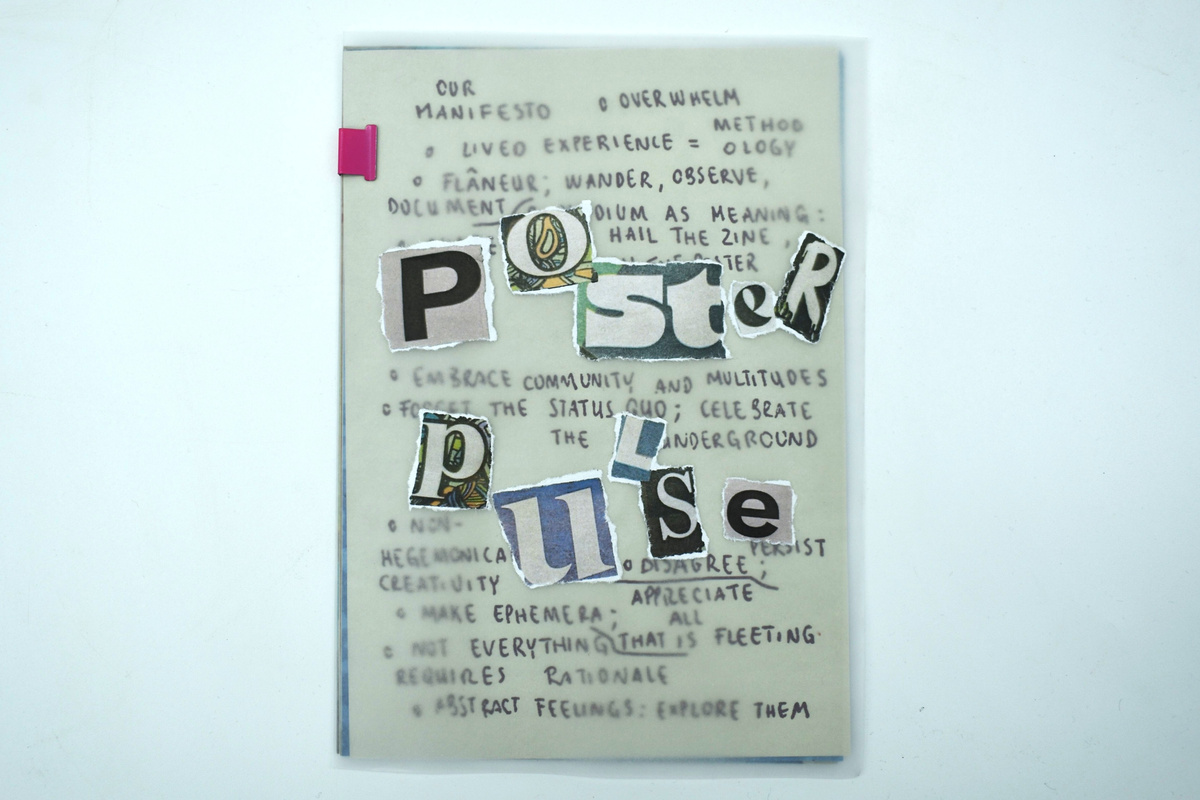 OUR
MANIFESTO
o OVERWHELM
o LIVED EXPERIENCE = METHOD
OLOGY
o FLÂNEUR; WANDER, OBSERVE,
DOCUMENT
DIUM AS MEANING:
HAIL THE ZINE,
POSteR
o EMBRACE COMMUNITY AND MULTITUDES
o FORGET THE STATUS QUO; CELEBRATE
THE UNDERGROUND
puLSe
o NON-
HEGEMONICA
CREATIVITY
o DISAGREE; PERSIST
o MAKE EPHEMERA; APPRECIATE
ALL
THAT IS FLEETING
o NOT EVERYTHING
REQUIRES RATIONALE
o ABSTRACT FEELINGS: EXPLORE THEM